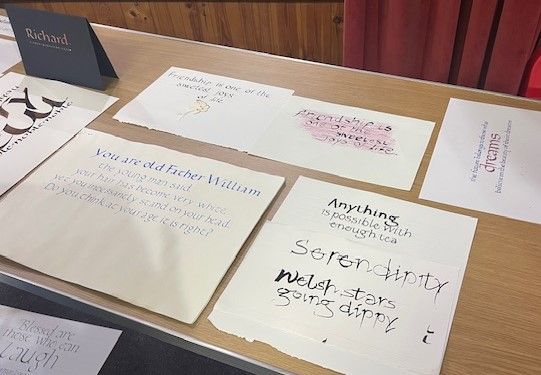 Richard
Friendship is one of the
sweetest joys
of life
Friendship is
one of the
sweetest
joys of life.
dreams
You are old Father William
the young man said
your hair has become very white
yet you incessantly stand on your head
Do you think, at your age, it is right?
Anything
is possible with
enough tea
Serendipity
Welsh stars
going dippy
i
Blessed are
those who can
laugh